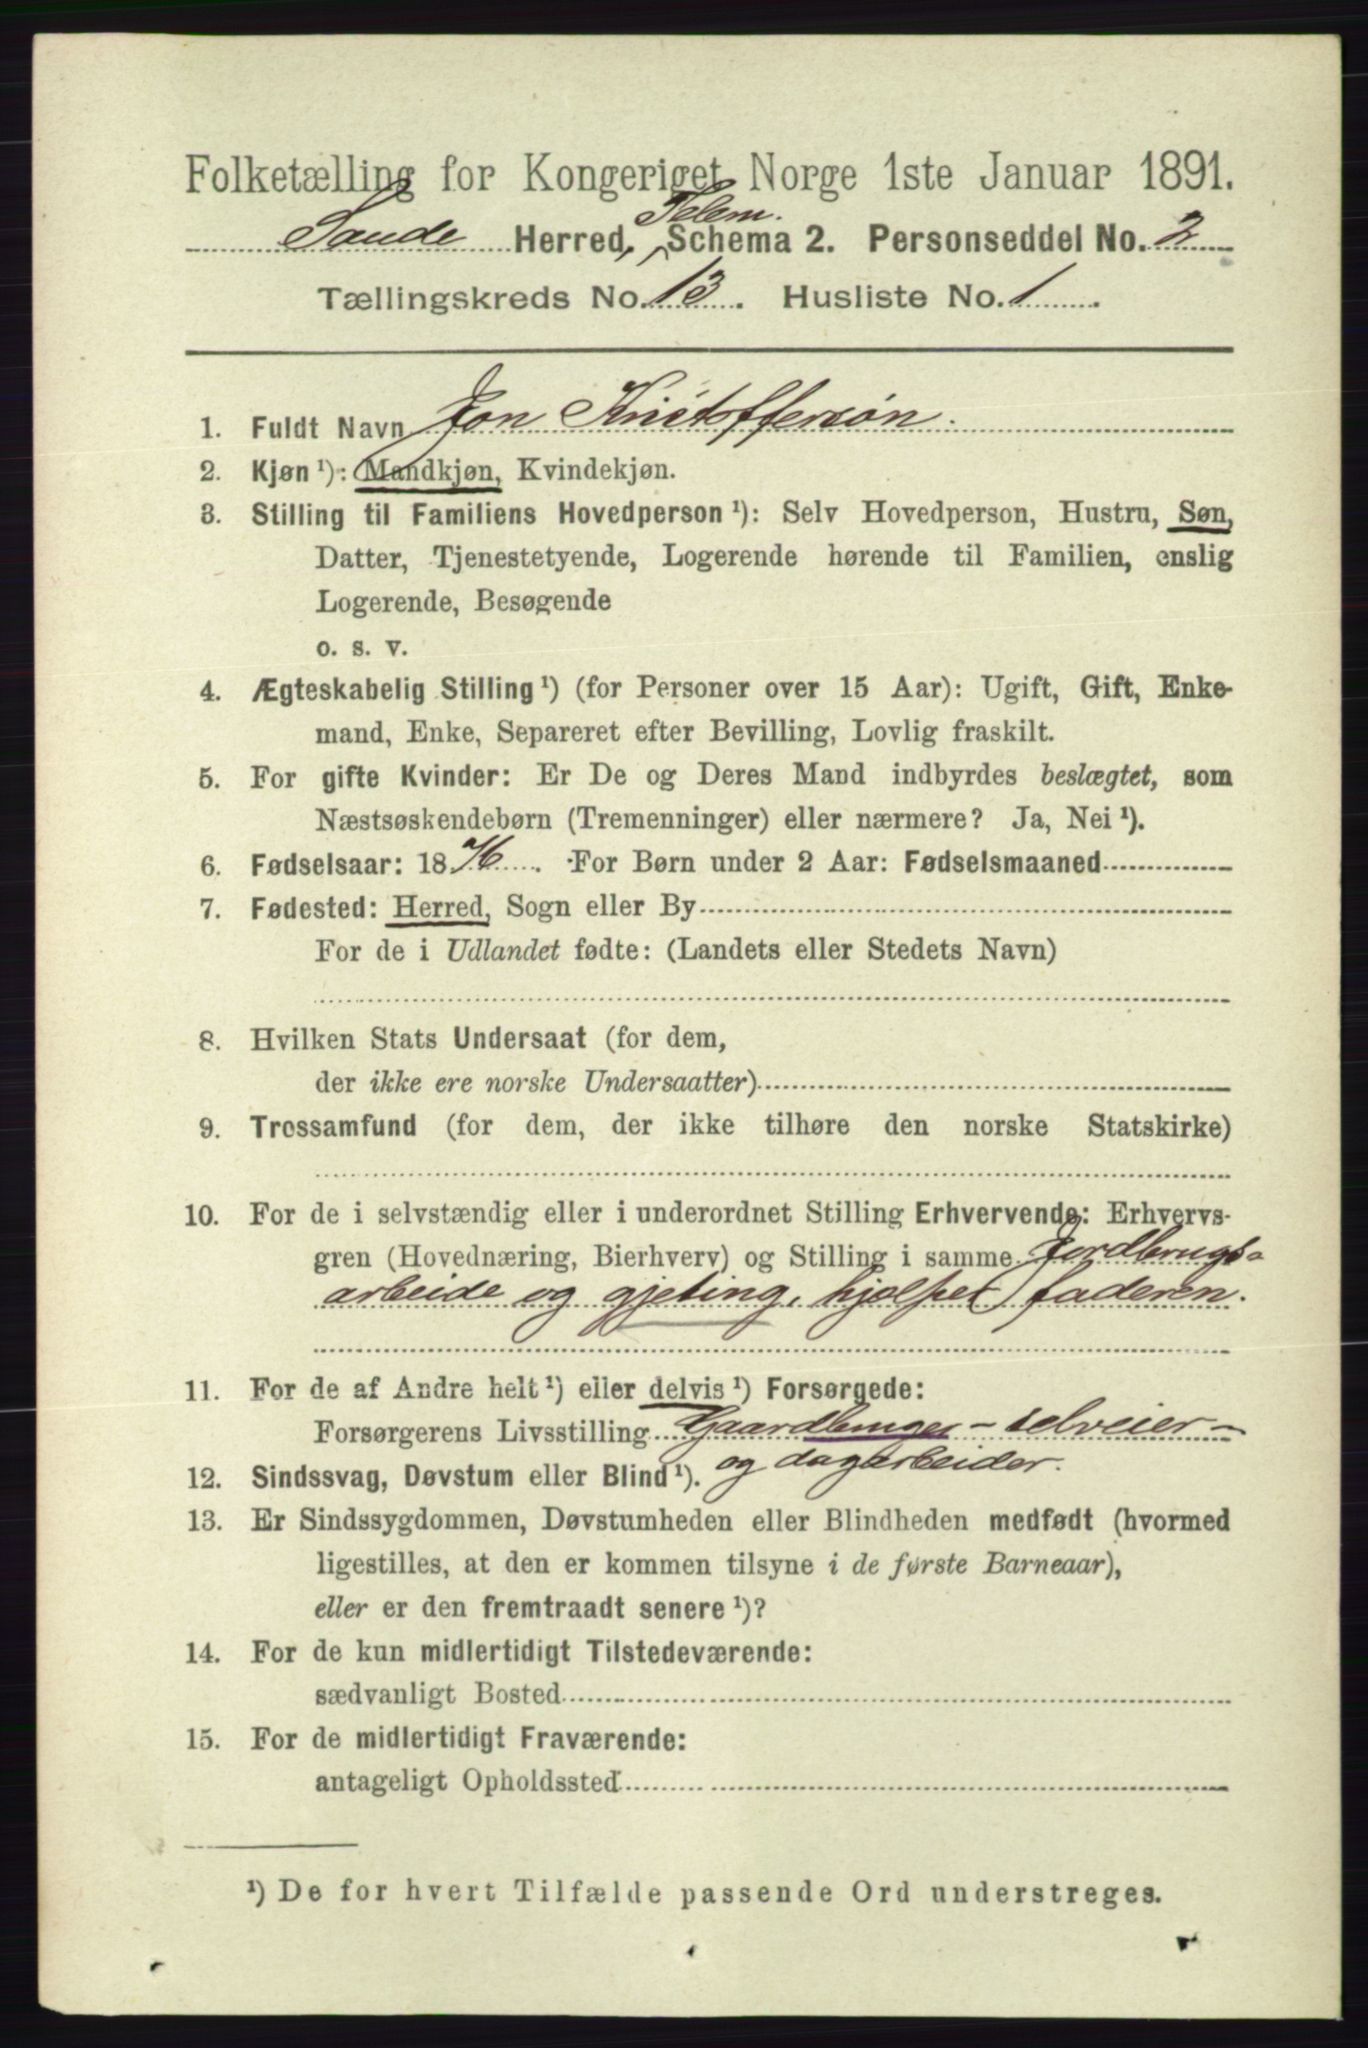 Folketælling for Kongeriget Norge 1ste Januar 1891.
Telem.
Saude Herred, Schema 2. Personseddel No. 2
Tællingskreds No. 13. Husliste No. 1.
1. Fuldt Navn Jon Kristoffersøn.
2. Kjøn ¹): Mandkjøn, Kvindekjøn.
3. Stilling til Familiens Hovedperson ¹): Selv Hovedperson, Hustru, Søn,
Datter, Tjenestetyende, Logerende hørende til Familien, enslig
Logerende, Besøgende
o. s. v.
4. Ægteskabelig Stilling ¹) (for Personer over 15 Aar): Ugift, Gift, Enke-
mand, Enke, Separeret efter Bevilling, Lovlig fraskilt.
5. For gifte Kvinder: Er De og Deres Mand indbyrdes beslægtet, som
Næstsøskendebørn (Tremenninger) eller nærmere? Ja, Nei ¹).
6. Fødselsaar: 1876. For Børn under 2 Aar: Fødselsmaaned
7. Fødested: Herred, Sogn eller By
For de i Udlandet fødte: (Landets eller Stedets Navn)
8. Hvilken Stats Undersaat (for dem,
der ikke ere norske Undersaatter)
9. Trossamfund (for dem, der ikke tilhøre den norske Statskirke)
10. For de i selvstændig eller i underordnet Stilling Erhvervende: Erhvervs-
gren (Hovednæring, Bierhverv) og Stilling i samme Jordbrugs-
arbeide og gjeting, hjælper faderen.
11. For de af Andre helt ¹) eller delvis ¹) Forsørgede:
Forsørgerens Livsstilling Gaardbruger – selveier –
og dagarbeider.
12. Sindssvag, Døvstum eller Blind ¹).
13. Er Sindssygdommen, Døvstumheden eller Blindheden medfødt (hvormed
ligestilles, at den er kommen tilsyne i de første Barneaar),
eller er den fremtraadt senere ¹)?
14. For de kun midlertidigt Tilstedeværende:
sædvanligt Bosted
15. For de midlertidigt Fraværende:
antageligt Opholdssted
¹) De for hvert Tilfælde passende Ord understreges.